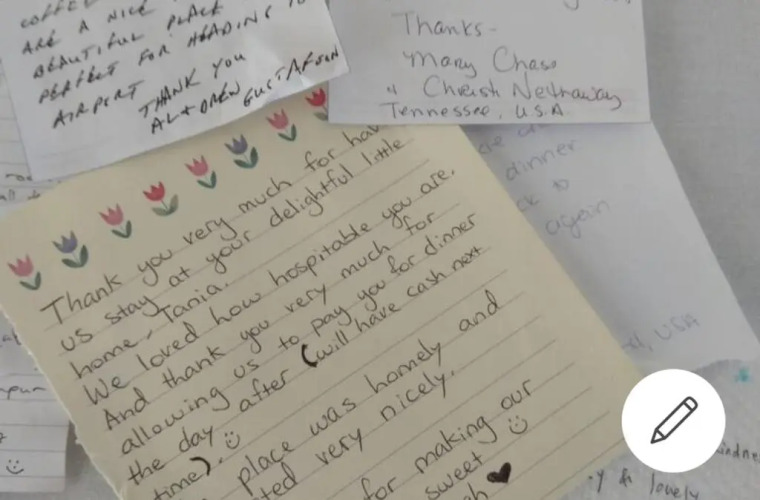 ARE A NICE
BEAUTIFUL PLACE
PERFECT FOR HEADING TO
AIRPORT THANK YOU
AL + DREW GUSTAFSON
Thanks-
Mary Chase
" Christi Nethaway
Tennessee, U.S.A.
dinner
to
again
USA
Thank you very much for hav
us stay at your delightful little
home, Tania.
We loved how hospitable you are.
And thank you very much for
allowing us to pay you for dinner
the day after (will have cash next
time). :)
place was homely and
ted very nicely.
for making our
sweet :)
♥
y & lovely